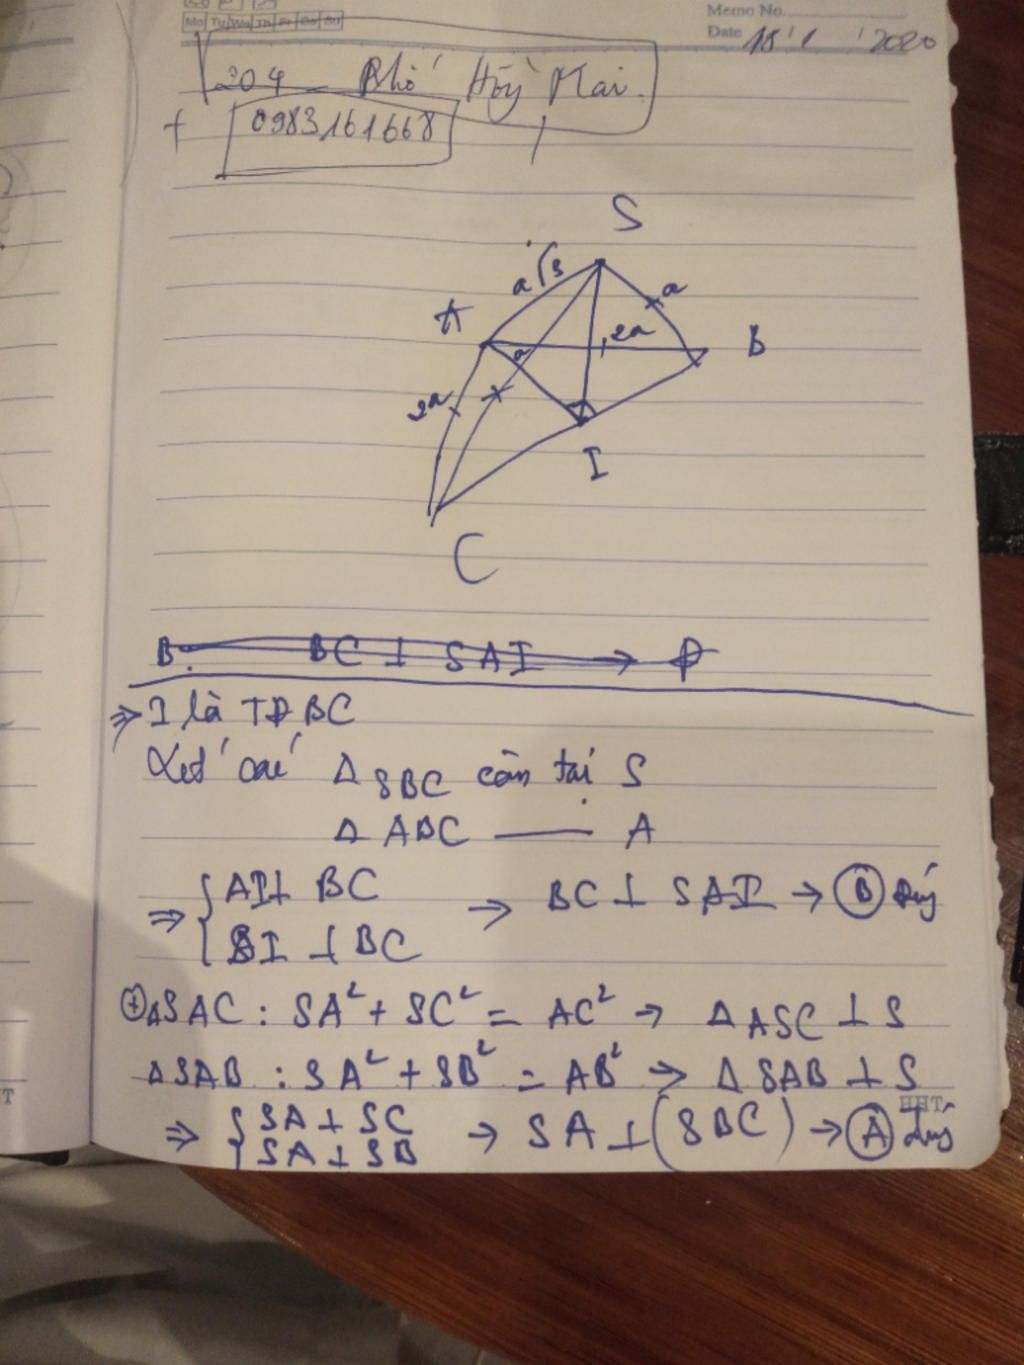 Memo No.
Mo Tu We Th Fr Sa Su
Date 18 / 1 / 2020
204 Phố Hồng Mai.
+ 0983161668
S
a√3
a
A
2a
B
a
2a
I
C
B. BC ⊥ SAI → Đ
⇒ I là TĐ BC
Xét các Δ SBC cân tại S
Δ ABC —— A
⇒ { AI ⊥ BC
SI ⊥ BC → BC ⊥ SAI → B Đúng
+ ΔSAC : SA² + SC² = AC² → Δ ASC ⊥ S
ΔSAB : SA² + SB² = AB² → Δ SAB ⊥ S
HHT
⇒ { SA ⊥ SC
SA ⊥ SB → SA ⊥ (SBC) → A Đúng